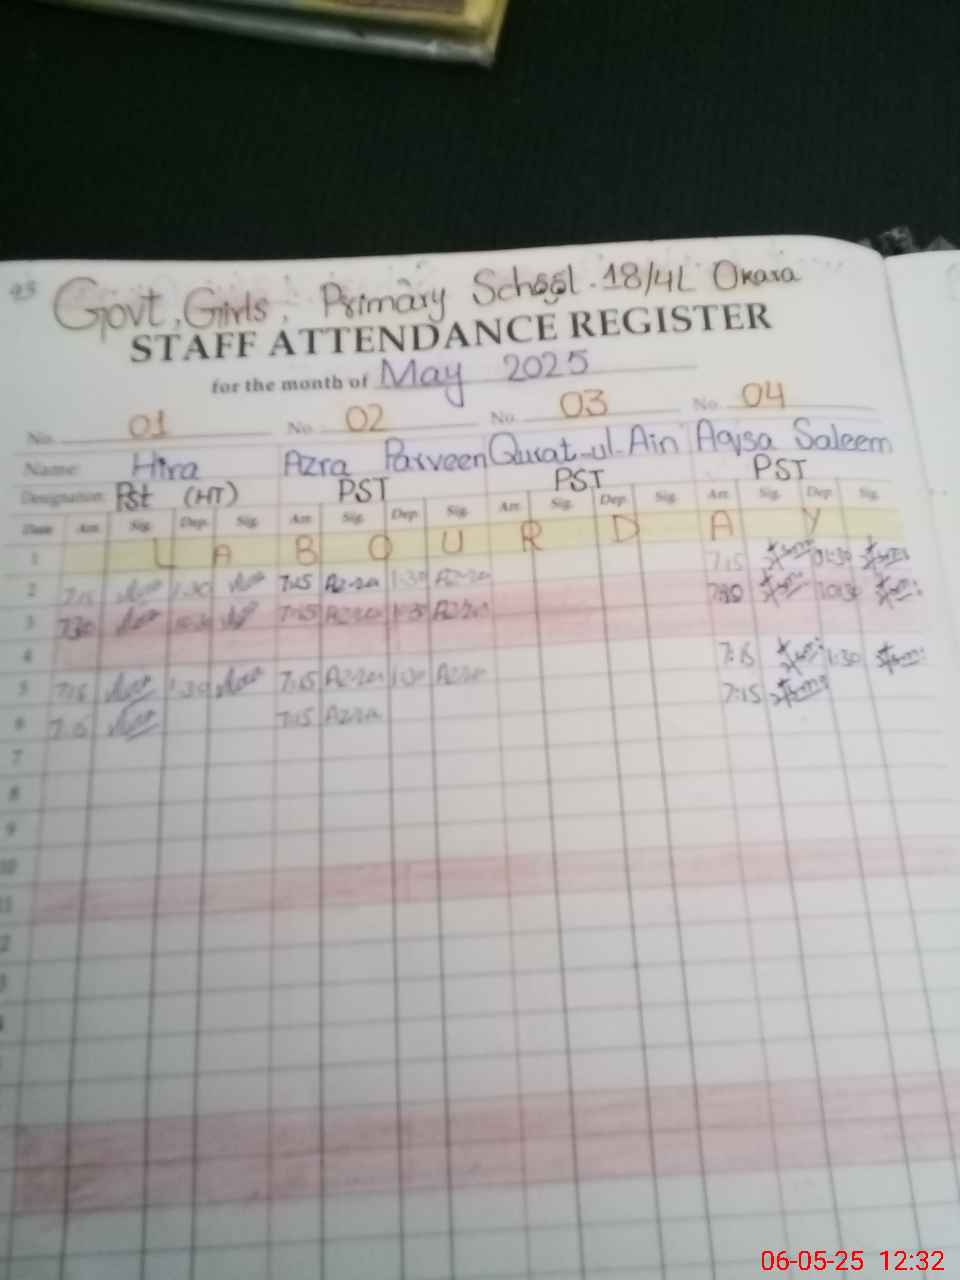 Govt, Girls, Primary School. 18/4L Okara
STAFF ATTENDANCE REGISTER
for the month of May 2025
No. 01 No. 02 No. 03 No. 04
Name: Hira Azra Parveen Qurat-ul-Ain Aqsa Saleem
Designation: Pst (HT) PST PST PST
Date Arr. Sig. Dep. Sig. Arr. Sig. Dep. Sig. Arr. Sig. Dep. Sig. Arr. Sig. Dep. Sig.
1 L A B O U R D A Y
2 7:15 1:30 7:15 Azra 1:30 Azra 7:15 01:30
3 7:30 7:15 Azra Azra
4
5 7:15 1:30 7:15 Azra 1:30 Azra 7:15 1:30
6 7:15 7:15 Azra 7:15
7
8
9
10
11
06-05-25 12:32